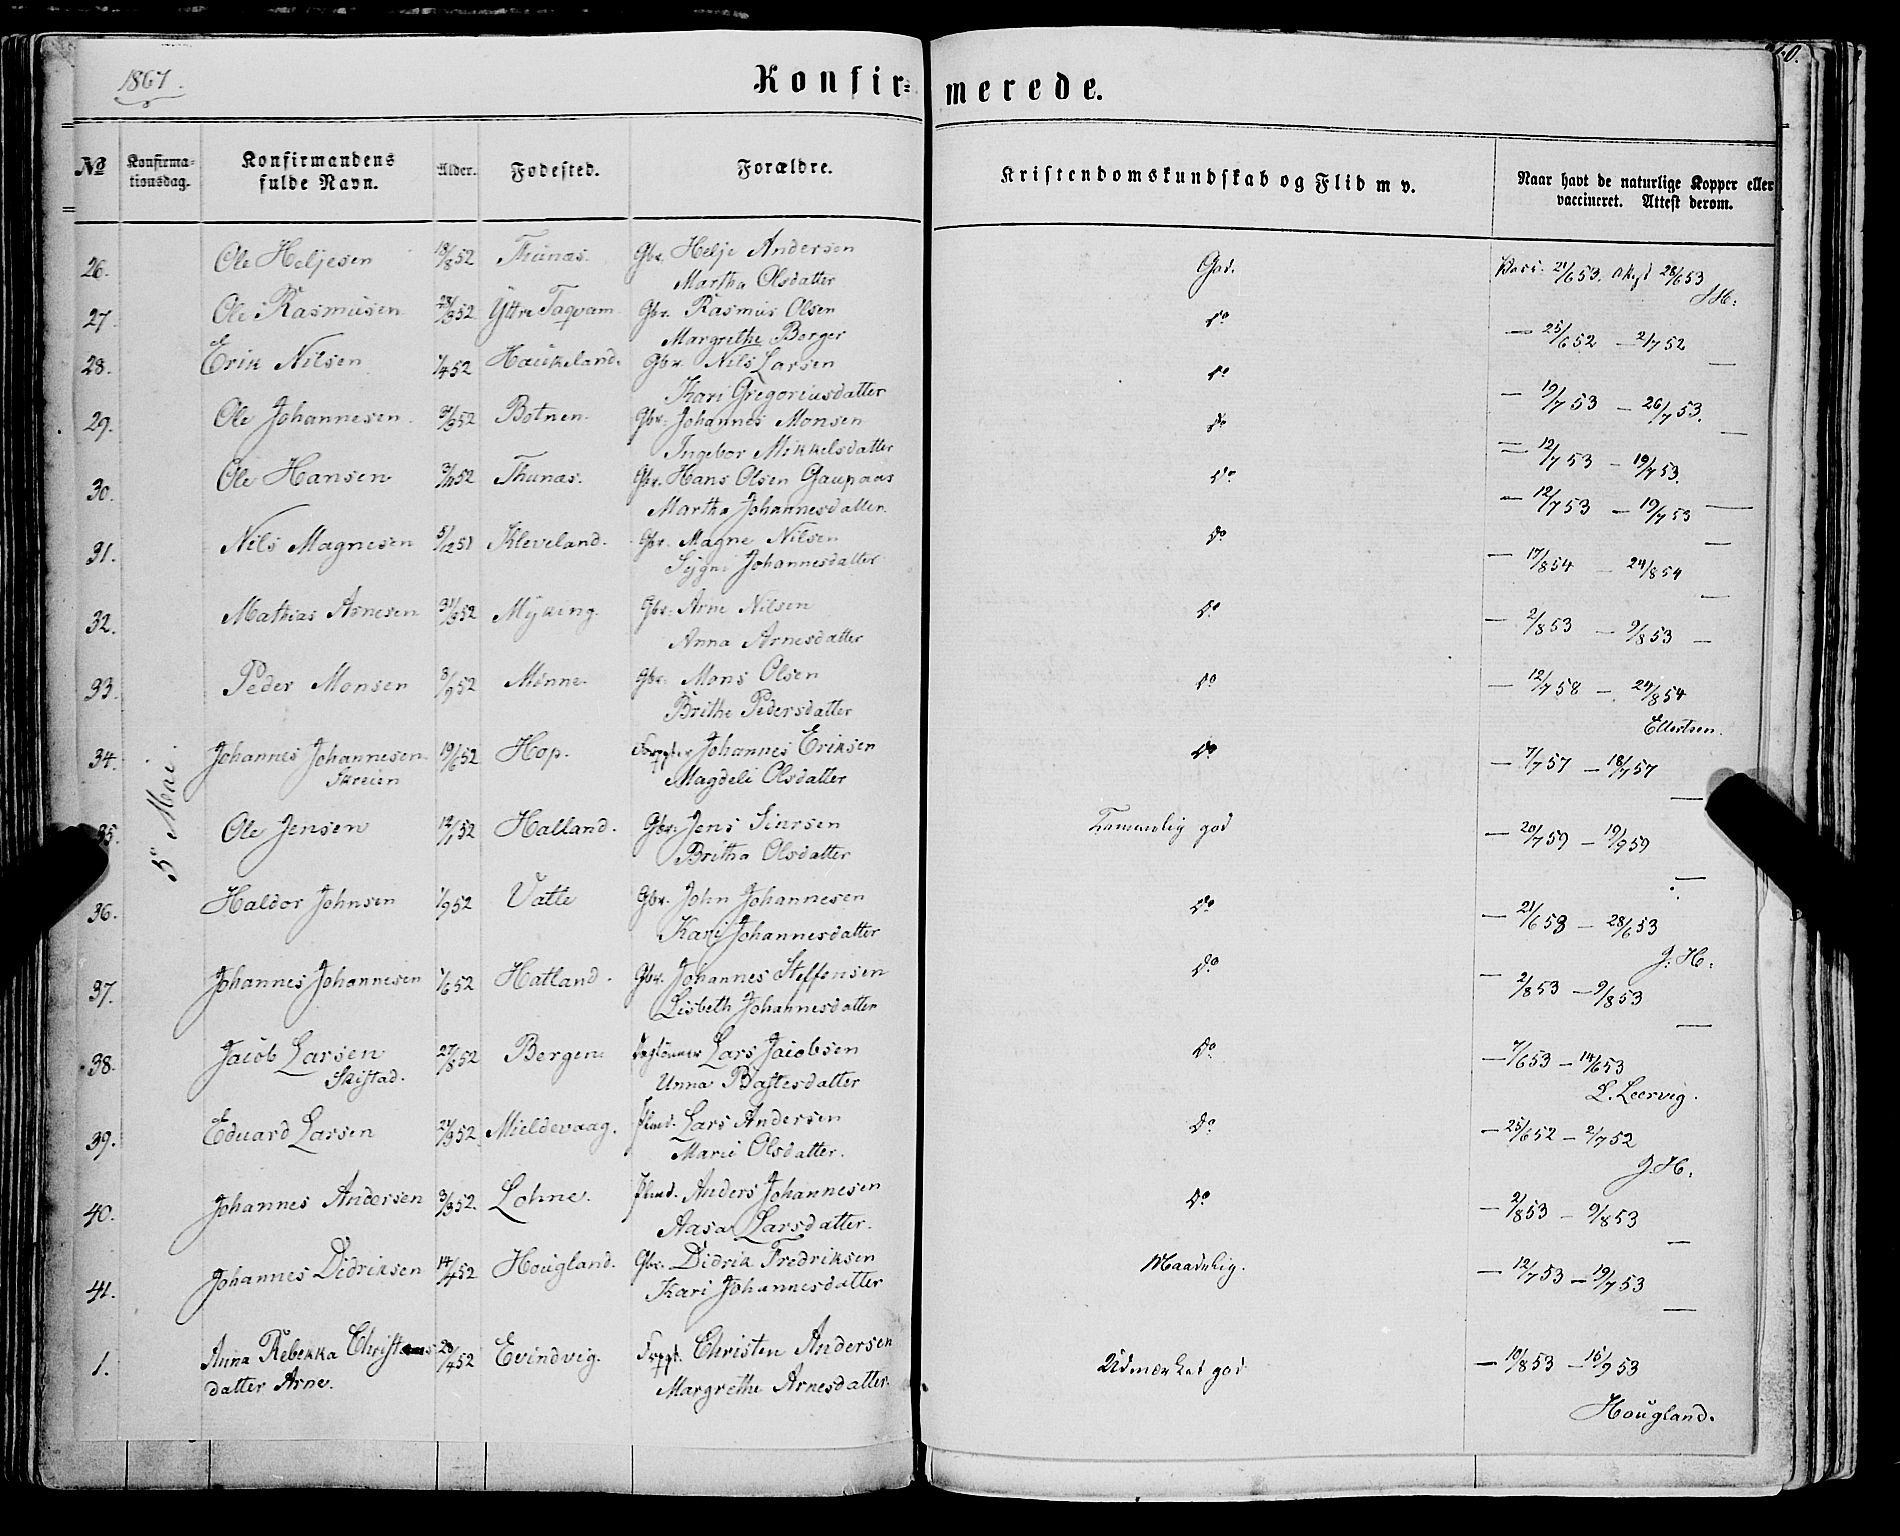 1867.
Konfir= merede.
No Konfirma-tionsdag. Konfirmandens fulde Navn. Alder. Fødested. Forældre. Kristendomskundskab og Flid m v. Naar havt de naturlige Kopper eller vaccineret. Attest derom.
5te Mai
26. Ole Heljesen 18/8 52 Thunæs. Gbr. Helje Andersen God. Vacc. 21/6 53. 28/6 53
Martha Olsdatter
27. Ole Rasmusen Yttre Taqvam Gbr. Rasmus Olsen do — 25/6 52 — 2/7 52
Margrethe Berger
28. Erik Nilsen 1/4 52 Haukeland. Gbr. Nils Larsen do — 19/7 53 — 26/7 53.
Kari Gregoriusdatter
29. Ole Johannesen Botnen. Gbr. Johannes Monsen do — 12/7 53 — 19/7 53.
Ingebor Mikkelsdatter
30. Ole Hansen Thunæs. Gbr. Hans Olsen Gaupaas do — 12/7 53 — 19/7 53
Martha Johannesdatter
31. Nils Magnesen 5/12 51 Kleveland. Gbr. Magne Nilsen do — 17/8 54 — 24/8 54
Sygni Johannesdatter
32. Mathias Arnesen 31/3 52 Myking. Gbr. Arne Nilsen do — 2/8 53 — 9/8 53 —
Anna Arnesdatter
33. Peder Monsen 8/9 52 Mønne. Gbr. Mons Olsen do — 12/7 58 — 24/8 54
Brithe Pedersdatter Ellertsen.
34. Johannes Johannesen 19/6 52 Hop. Johannes Eriksen do — 7/7 57 — 18/7 57
Skreien Magdeli Olsdatter
35. Ole Jensen 12/1 52 Halland. Gbr. Jens Siursen Temmelig god — 20/7 59 — 19/9 59
Britha Olsdatter
36. Haldor Johnsen 1/9 52 Vatle Gbr. John Johannesen do — 21/6 53 — 28/6 53
Kari Johannesdatter J. H.
37. Johannes Johannesen 1/6 52 Hatland. Gbr. Johannes Steffensen do — 2/8 53 — 9/8 53
Lisbeth Johannesdatter
38. Jacob Larsen 27/8 52 Bergen Lars Jacobsen do — 7/6 53 — 14/6 53
Skistad. Unna Bastesdatter L. Leervig.
39. Eduard Larsen 21/9 52. Mieldevaag. Plmd. Lars Andersen do — 25/6 52 — 2/7 52
Marie Olsdatter. J. H.
40. Johannes Andersen 3/3 52. Lohne. Plmd. Anders Johannesen do — 2/8 53 — 9/8 53
Aasa Larsdatter.
41. Johannes Didriksen 14/4 52 Hougland. Gbr. Didrik Fredriksen Maadelig. — 12/7 53 — 19/7 53
Kari Johannesdatter
1. Anna Rebekka Christens 20/4 52 Evindvig. Christen Andersen Udmærket god — 10/8 53 — 15/9 53
datter Arne. Margrethe Arnesdatter. Hougland.